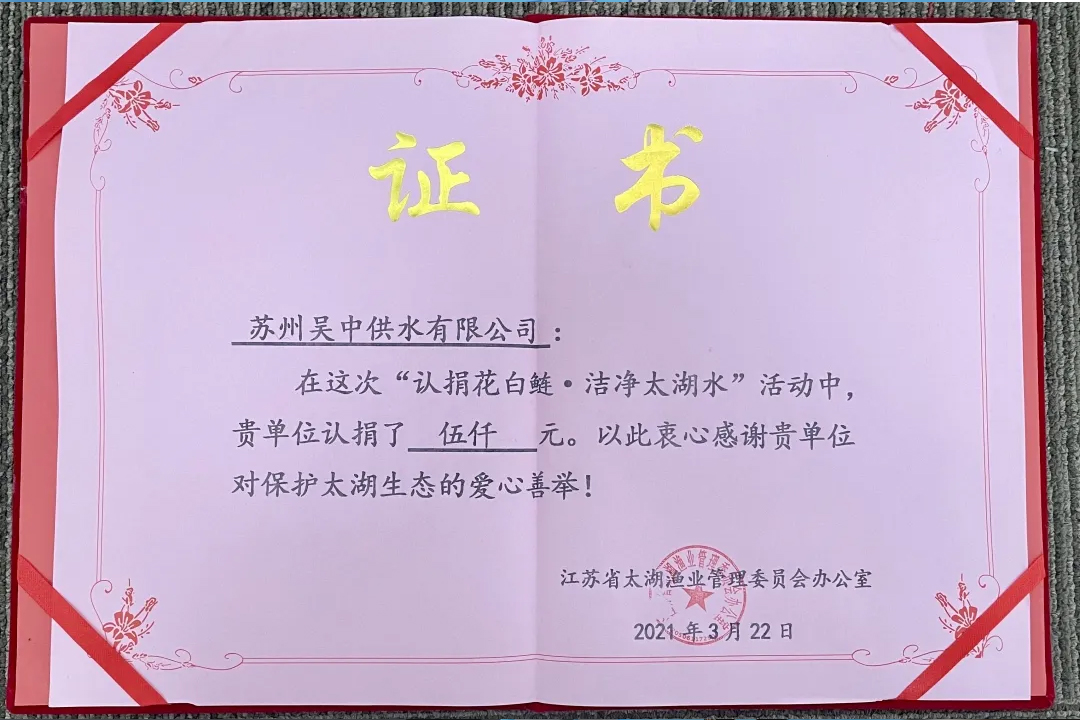 证书
苏州吴中供水有限公司：
在这次“认捐花白鲢·洁净太湖水”活动中，
贵单位认捐了 伍仟 元。以此衷心感谢贵单位
对保护太湖生态的爱心善举！
江苏省太湖渔业管理委员会办公室
2021年3月22日